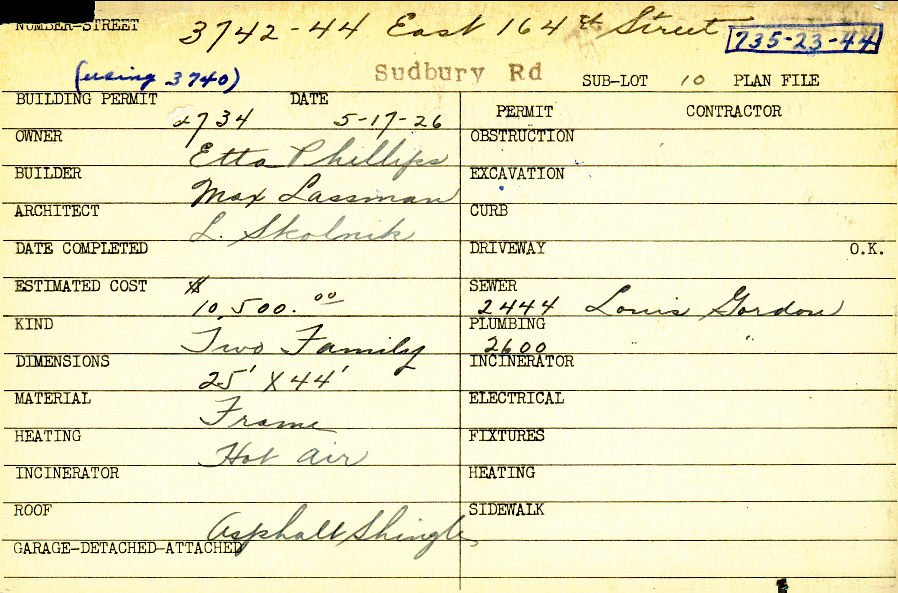 NUMBER-STREET 3742-44 East 164th Street 735-23-44
(using 3740) Sudbury Rd SUB-LOT 10 PLAN FILE
BUILDING PERMIT 2734 DATE 5-17-26
PERMIT CONTRACTOR
OWNER Etta Phillips
BUILDER Max Lassman
ARCHITECT L. Skolnik
DATE COMPLETED
ESTIMATED COST $10,500.00
KIND Two Family
DIMENSIONS 25' X 44'
MATERIAL Frame
HEATING Hot Air
INCINERATOR
ROOF Asphalt Shingles
GARAGE-DETACHED-ATTACHED
OBSTRUCTION
EXCAVATION
CURB
DRIVEWAY O.K.
SEWER 2444 Louis Gordon
PLUMBING 2600 "
INCINERATOR
ELECTRICAL
FIXTURES
HEATING
SIDEWALK